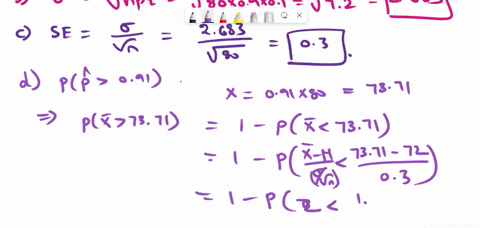 = √80×0.9×0.1 = √7.2 =
c) SE = σ/√n = 2.683/√80 = 0.3.
d) p(p̂ > 0.91)
x = 0.91×80 = 73.71
⇒ p(x̄ > 73.71) = 1 - p(x̄ < 73.71)
= 1 - p(x̄-M/(σ/√n) < 73.71 - 72/0.3)
= 1 - p(z < 1.